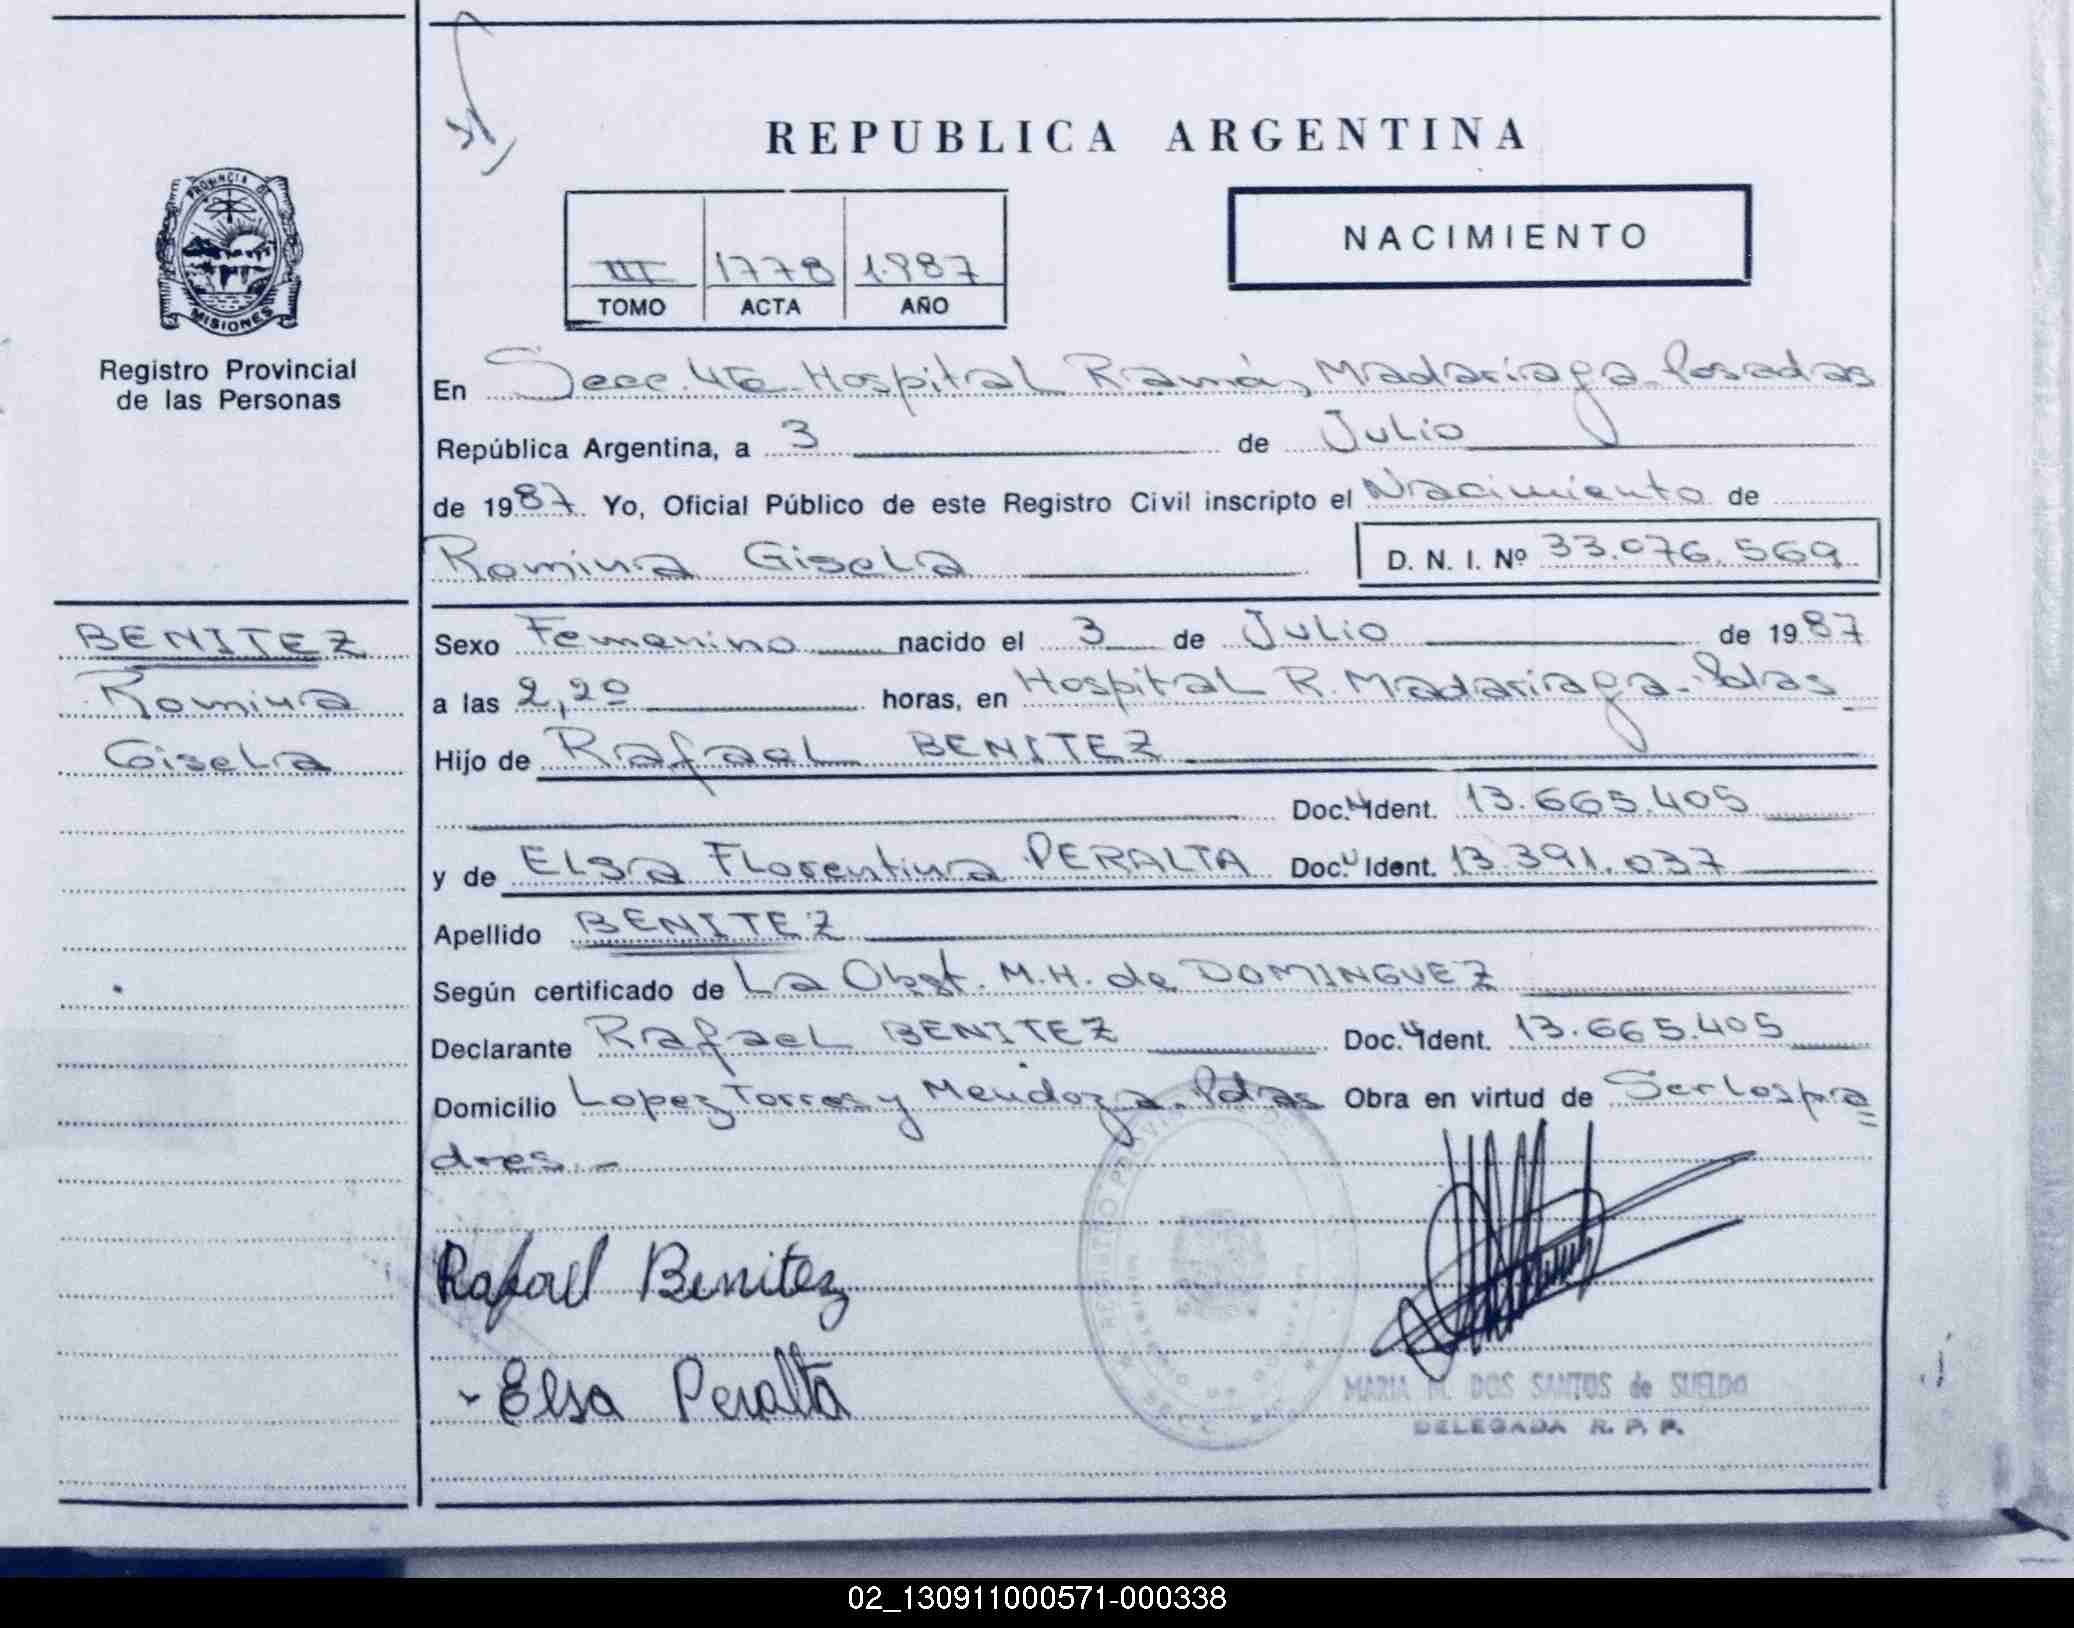 REPUBLICA ARGENTINA
NACIMIENTO
III 1778 1.987
TOMO ACTA AÑO
PROVINCIA DE
MISIONES
Registro Provincial
de las Personas
En Secc. 4ta. Hospital Ramón Madariaga. Posadas
República Argentina, a 3 de Julio
de 1987. Yo, Oficial Público de este Registro Civil inscripto el Nacimiento de
Romina Gisela D. N. I. Nº 33.076.569
BENITEZ
Romina
Gisela
Sexo Femenino nacido el 3 de Julio de 1987
a las 2,20 horas, en Hospital R. Madariaga. Pdas
Hijo de Rafael BENITEZ
Doc. Ident. 13.665.405
y de Elsa Florentina PERALTA Doc. Ident. 13.391.037
Apellido BENITEZ
Según certificado de La Obst. M.H. de DOMINGUEZ
Declarante Rafael BENITEZ Doc. Ident. 13.665.405
Domicilio Lopez Torres y Mendoza. Pdas Obra en virtud de Ser los pa
dres.-
Rafael Benitez
- Elsa Peralta
MARIA M. DOS SANTOS de SUELDO
DELEGADA R. P. P.
02_130911000571-000338